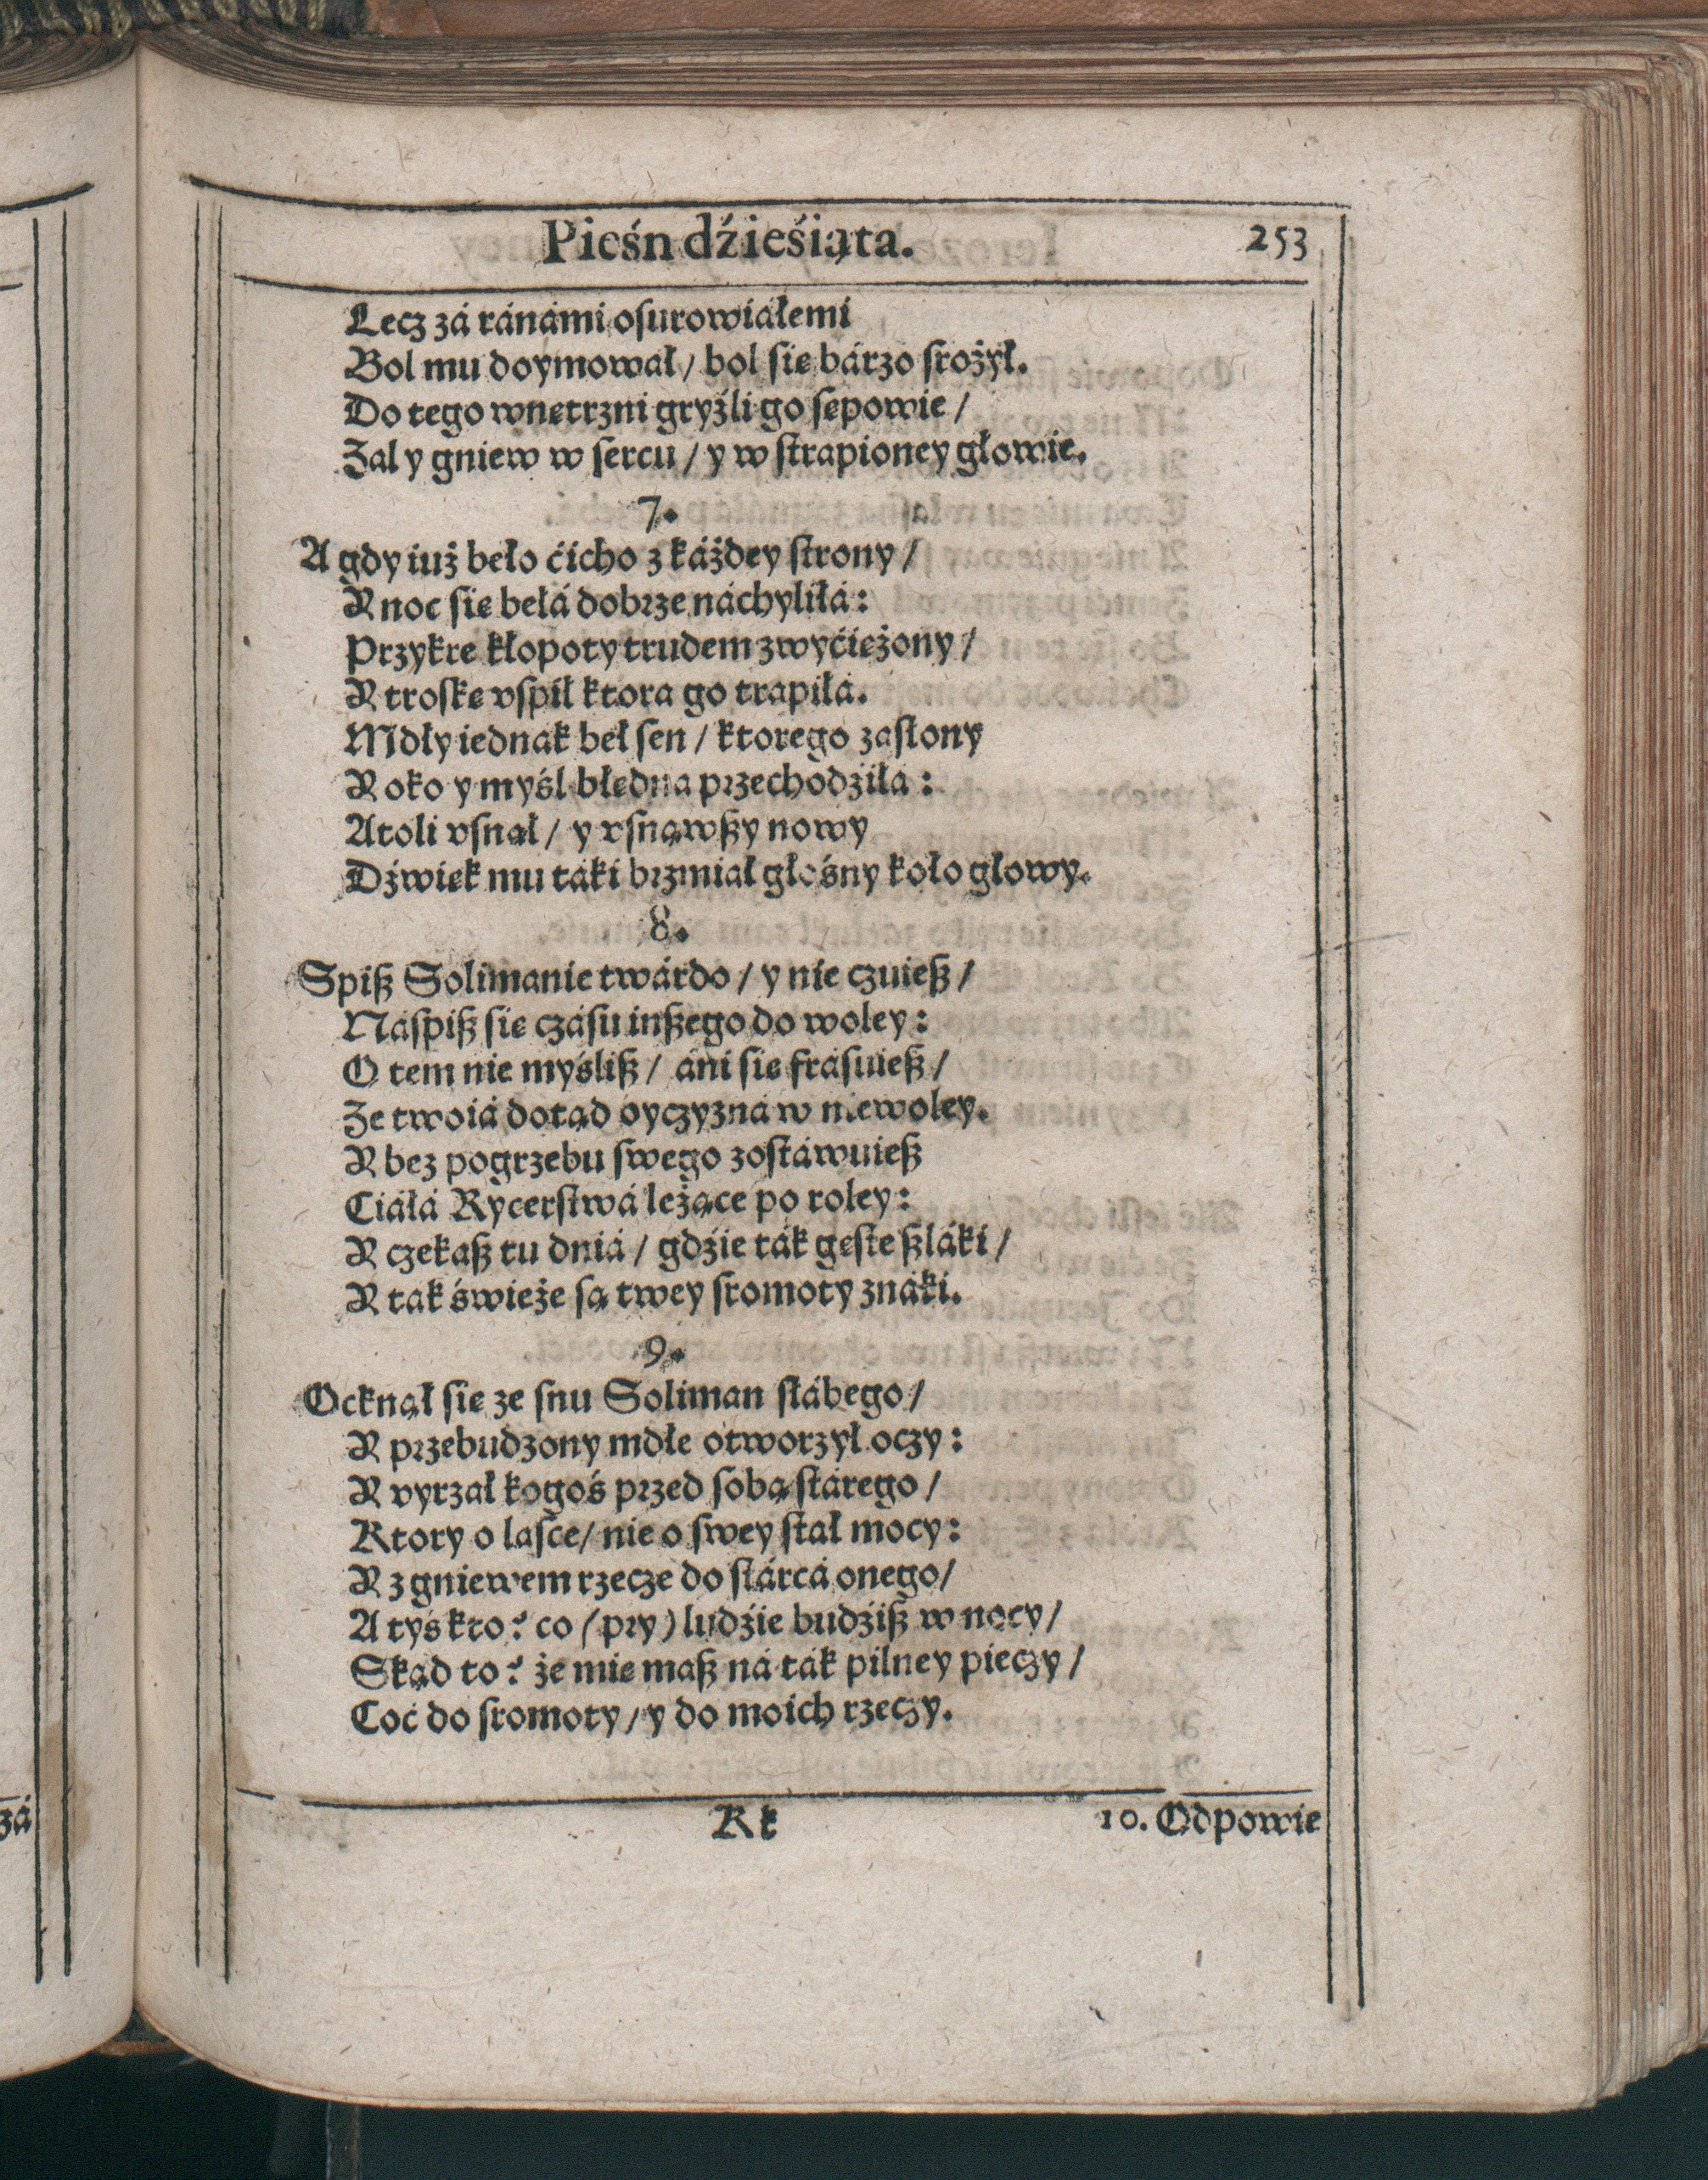 Pieśń dźieśiąta. 253
Lecz zá ránámi osurowiáłemi
Bol mu doymował / bol się bárzo srożył.
Do tego wnętrzni gryźli go sępowie /
Zal y gniew w sercu / y w strapioney głowie.
7.
A gdy iuż beło ćicho z káżdey strony /
Y noc się belá dobrze náchyliłá:
Przykre kłopoty trudem zwyćiężony /
Y troskę vspił ktora go trapiłá.
Mdły iednák beł sen / ktorego zasłony
Y oko y myśl błędna przechodźiłá:
Atoli vsnął / y vsnąwszy nowy
Dźwięk mu táki brzmiał głośny koło głowy.
8.
Spisz Solimanie twárdo / y nie czuiesz /
Náspisz się czásu inszego do woley:
O tem nie myślisz / áni się frásuiesz /
Ze twoiá dotąd oyczyzná w niewoley.
Y bez pogrzebu swego zostáwuiesz
Ciáłá Rycerstwá leżące po roley:
Y czekasz tu dniá / gdźie ták gęste szláki /
Y ták świeże są twey sromoty znáki.
9.
Ocknął się ze snu Soliman słábego /
Y przebudzony mdłe otworzył oczy:
Y vyrzał kogoś przed sobą stárego /
Ktory o lasce / nie o swey stał mocy:
Y z gniewem rzecze do stárcá onego /
A tyś kto? co (pry) ludźie budźisz w nocy /
Skąd to? że mię masz ná ták pilney pieczy /
Coć do sromoty / y do moich rzeczy.
Kk 10. Odpowie
zá